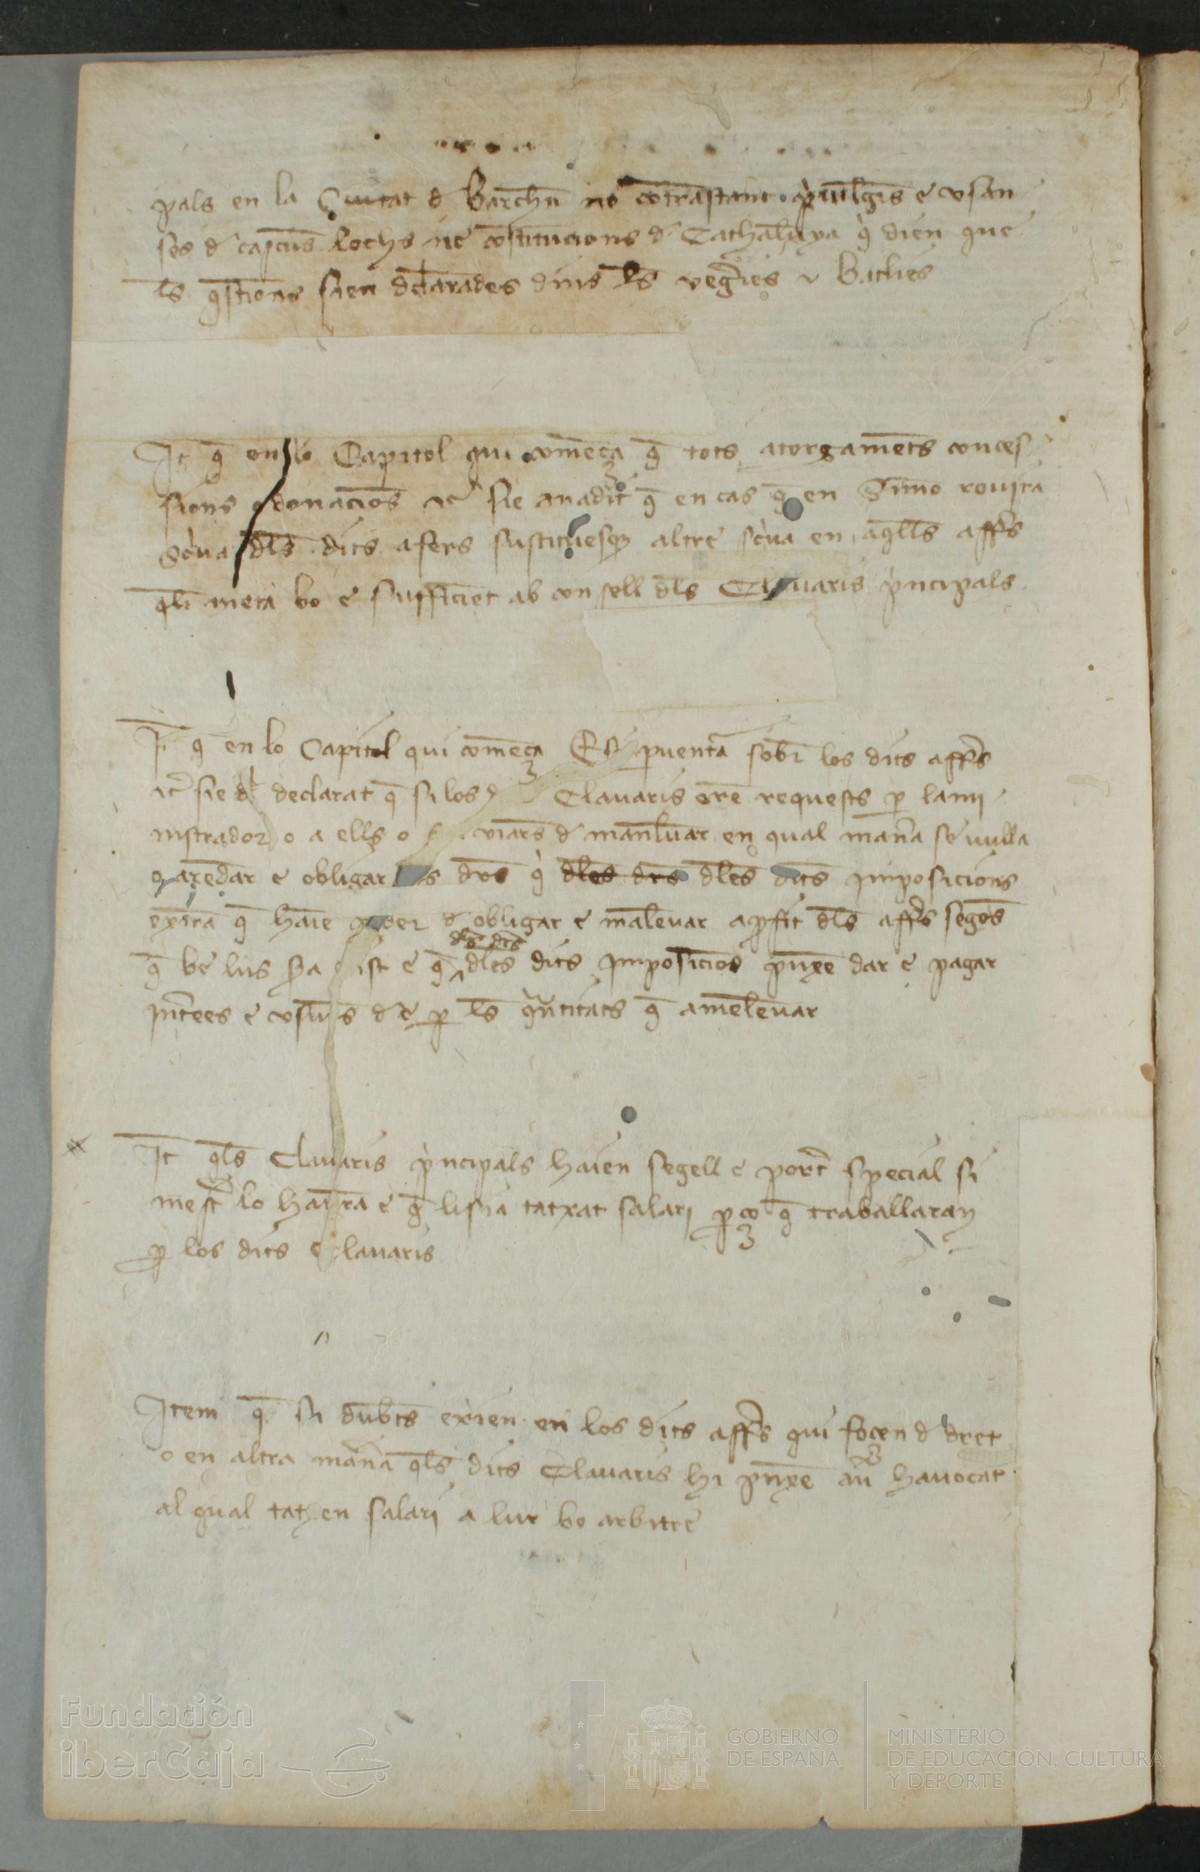 pals en la Ciutat d Barchn no cōtrastant priuilegis e vsan
ses d cascuns lochs ne cōstitucions d Cathalunya q̄ dien que
ls q̄stions sien declarades dins ls vegries e Batlies
It q̄ en lo Capitol qui comēça q̄ tots atorgamēts conces
sions e donacions &c sie anadit q̄ en cas q̄ en Simo rouira
dls dits afers sustitues altre en aq̄lls affers
q̄li meta bo e sufficiēt ab consell dls Clauaris p̄ncipals
It q̄ en lo Capitol qui comēça E si puentura sobr los dits affers
&c sie declarat q̄ si los Clauaris erē requests p lami
nistrador o a ells o d manleuar en qual manera se vulla
e obligar drs q̄ dles dits Imposicions
q̄ haie poder d obligar e māleuar a pfit dls affers segons
q̄ be lus sera vist e q̄ dles dits Imposicions puxē dar e pagar
Intrees e vsures d e p ls quātitats q̄ amāleuar
It q̄ls Clauaris p̄ncipals haien segell e port special si
mest lo hauran e q̄ tatxat salari p ço q̄ traballaran
p los dits Clauaris
Item q̄ si dubts exien en los dits affers qui fossen d dret
o en altra manera q̄ls dits Clauaris hi puxē hauocat
al qual tatxen salari a lur bo arbitre
Fundación
iberCaja
GOBIERNO
DE ESPAÑA
MINISTERIO
DE EDUCACIÓN, CULTURA
Y DEPORTE